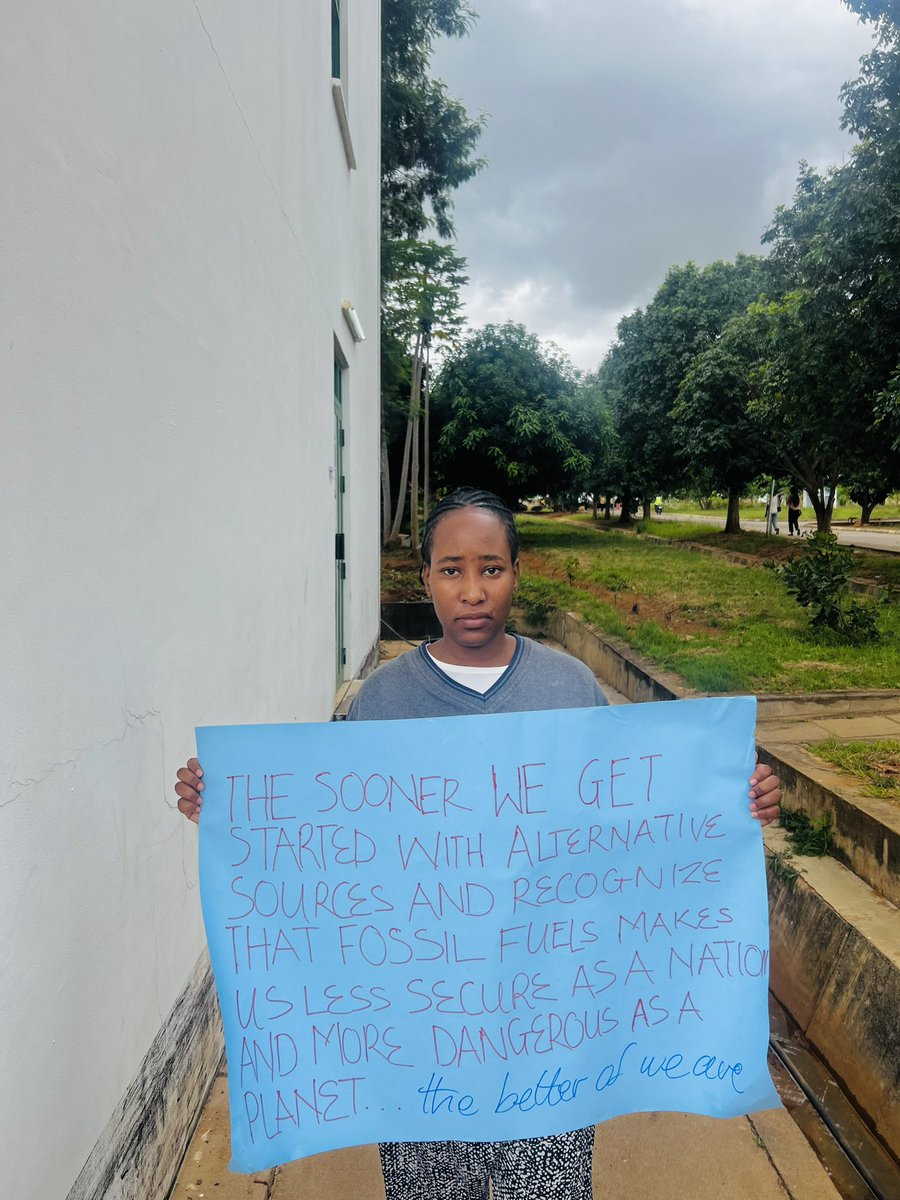 THE SOONER WE GET
STARTED WITH ALTERNATIVE
SOURCES AND RECOGNIZE
THAT FOSSIL FUELS MAKES
US LESS SECURE AS A NATION
AND MORE DANGEROUS AS A
PLANET... the better of we are